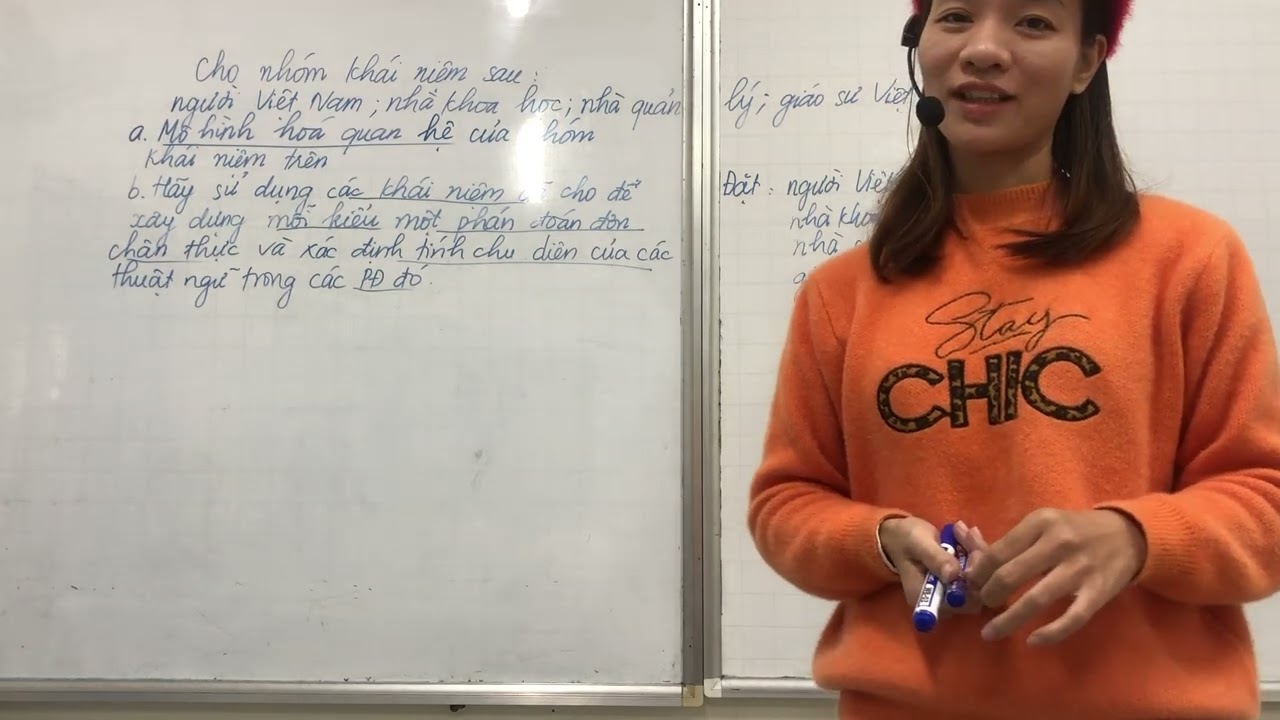 Cho nhóm khái niệm sau:
người Việt Nam; nhà khoa học; nhà quản lý; giáo sư Việt
a. Mô hình hoá quan hệ của nhóm
khái niệm trên
b. Hãy sử dụng các khái niệm cho để
xây dựng mỗi kiểu một phán đoán đơn
chân thực và xác định tính chu diên của các
thuật ngữ trong các PĐ đó.
Đặt: người Việt
nhà khoa
nhà
Stay
CHIC